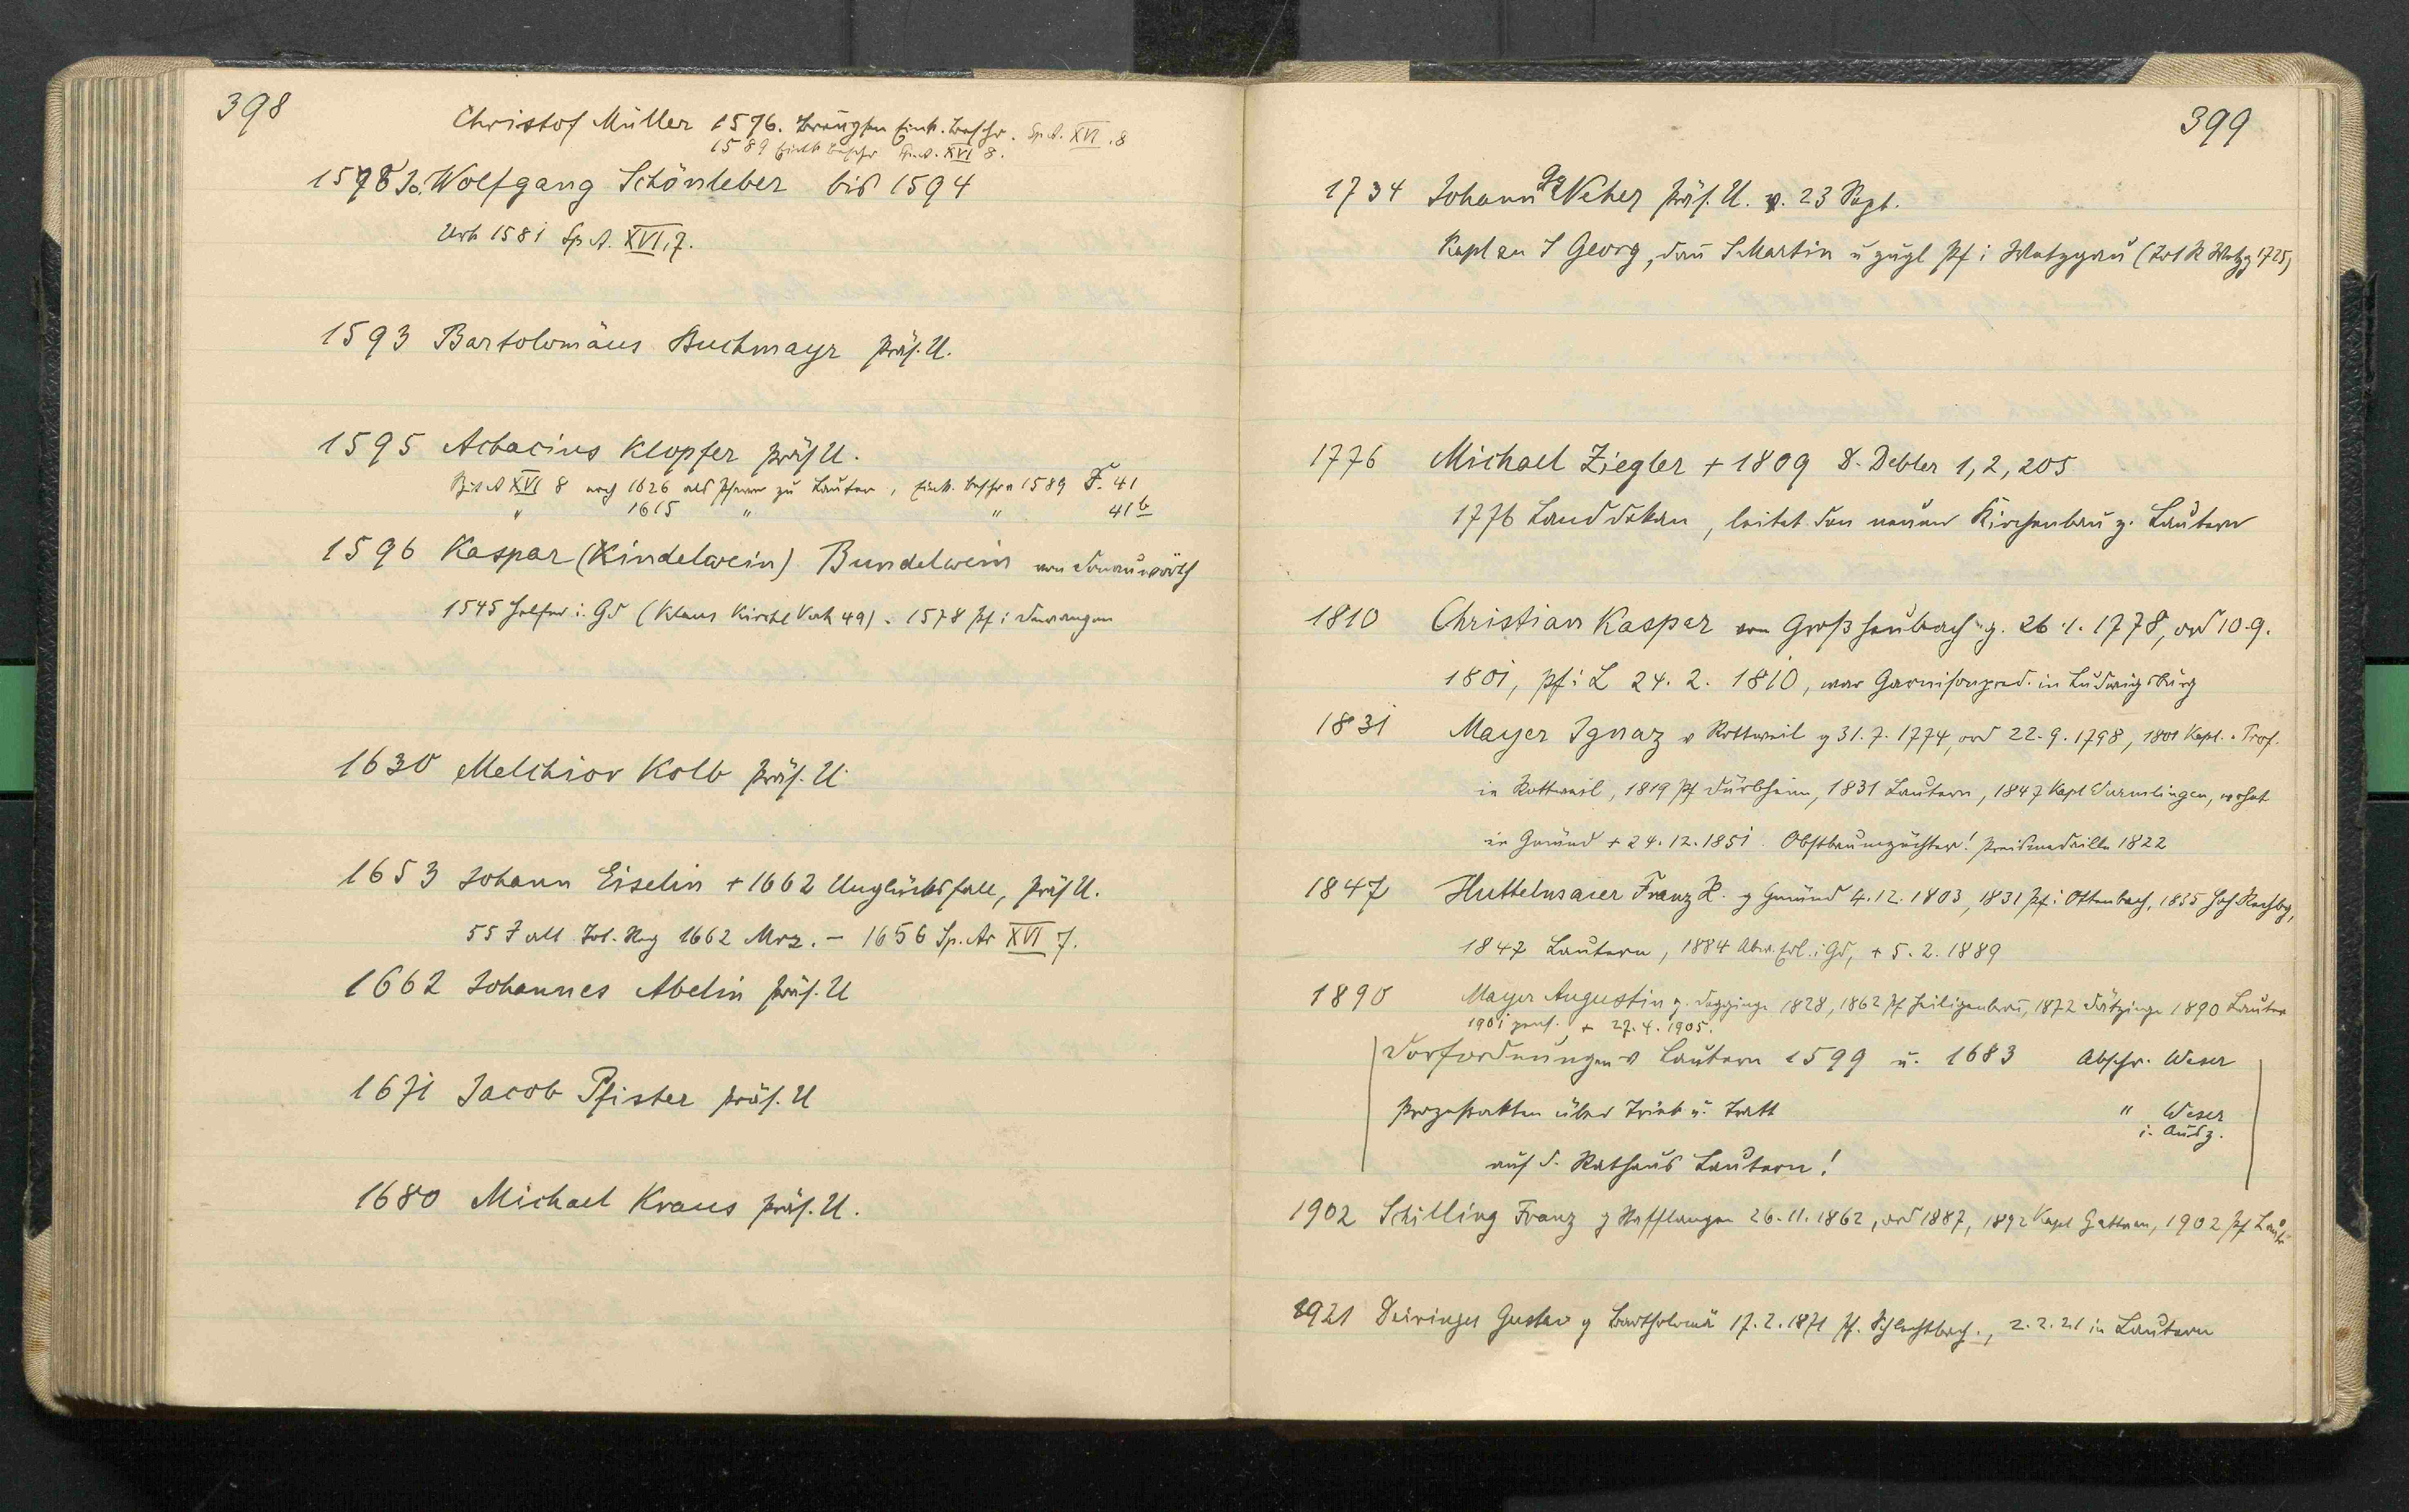 398
Christof Müller 1576. Eink. Beschr. Sp. A. XVI. 8
1589 Eink Beschr Sp. A. XVI 8.
1578 Jo. Wolfgang Schönleber bis 1594
Urk 1581 Sp. A. XVI, 7.
1593 Bartolomäus Buchmayr Präs. U.
1595 Achacius Klopfer Präs U.
Sp. A XVI 8 noch 1626 als Pfarrer zu Lautern, Eink. Beschr 1589 F. 41
" 1615 " " 41b
1596 Kaspar (Kindelwein) Bundelwein von Donauwörth
1545 Helfer i. Gd (Klaus Kirchl Verh 49). 1578 Pf i Dewangen
1630 Melchior Kolb Präs. U.
1653 Johann Eiselin + 1662 Unglücksfall, Präs U.
55 J alt Tot. Reg 1662 Mrz. - 1656 Sp. Ar XVI 7.
1662 Johannes Abelin Präs. U
1671 Jacob Pfister Präs. U
1680 Michael Kraus Präs. U.
399
1734 Johann Gg Neher Präs. U. v. 23 Sept.
Kaplan S Georg, dan S Martin u zugl Pf i Wetzgau (Tot R Wetzg 1725)
1776 Michael Ziegler + 1809 D. Debler 1, 2, 205
1776 Landdekan, leitet den neuen Kirchenbau z. Lautern
1810 Christian Kaspar von Großheubach g. 26.1. 1778, ord 10.9.
1801, Pf i L 24. 2. 1810, war Garnisonpred. in Ludwigsburg
1831 Mayer Ignaz v Rottweil g 31.7.1774, ord 22.9.1798, 1801 Kapl. Prof.
in Rottweil, 1819 Pf Dürbheim, 1831 Lautern, 1847 Kapl Durmlingen, wohnt
in Gmünd + 24.12.1851. Obstbaumzüchter! Preismedaille 1822
1847 Huttelmaier Franz X. g Gmünd 4.12.1803, 1831 Pf i Ottenbach, 1835 Hohenrechbg,
1847 Lautern, 1884 i Gd, + 5.2.1889
1890 Mayer Augustin g. Deggingen 1828, 1862 Pf Heiligenbronn, 1872 Dätzingen 1890 Lautern
1901 pens. + 27.4.1905.
Dorfordnungen v Lautern 1599 u. 1683 Abschr. Weser
Prozeßakten über Trieb u. Tratt " Weser
i. Ausz.
auf d. Rathaus Lautern!
1902 Schilling Franz g Uhlingen 26.11.1862, ord 1887, 1892 Kapl 1902 Pf Lautern
1921 Deiringer Gustav g Bartholomä 17.2.1871 Pf. Schlechtbach., 2.2.21 in Lautern